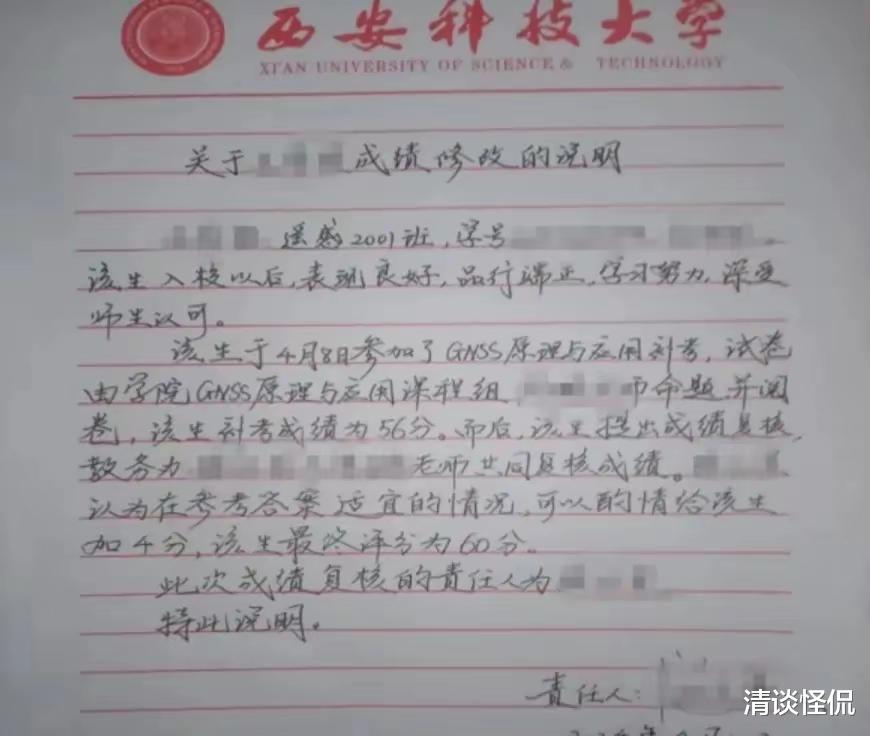 西安科技大学
XI'AN UNIVERSITY OF SCIENCE & TECHNOLOGY
关于 成绩修改的说明
遥感2001班,学号
该生入校以后,表现良好,品行端正,学习努力,深受
师生认可。
该生于4月8日参加了GNSS原理与应用补考,试卷
由学院GNSS原理与应用课程组 命题并阅
卷,该生补考成绩为56分。而后,该生提出成绩复核,
教务为 老师共同复核成绩。
认为在参考答案适宜的情况,可以酌情给该生
加4分,该生最终评分为60分。
此次成绩复核的责任人为
特此说明。
责任人:
清谈怪侃